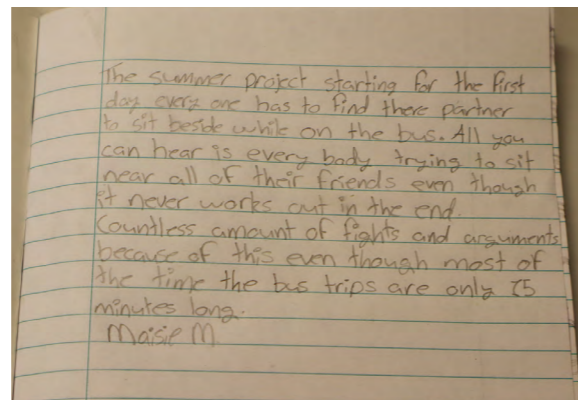 The summer project starting for the first
day every one has to find there partner
to sit beside while on the bus. All you
can hear is every body trying to sit
near all of their friends even though
it never works out in the end.
Countless amount of fights and arguments
because of this even though most of
the time the bus trips are only 15
minutes long.
Maisie M